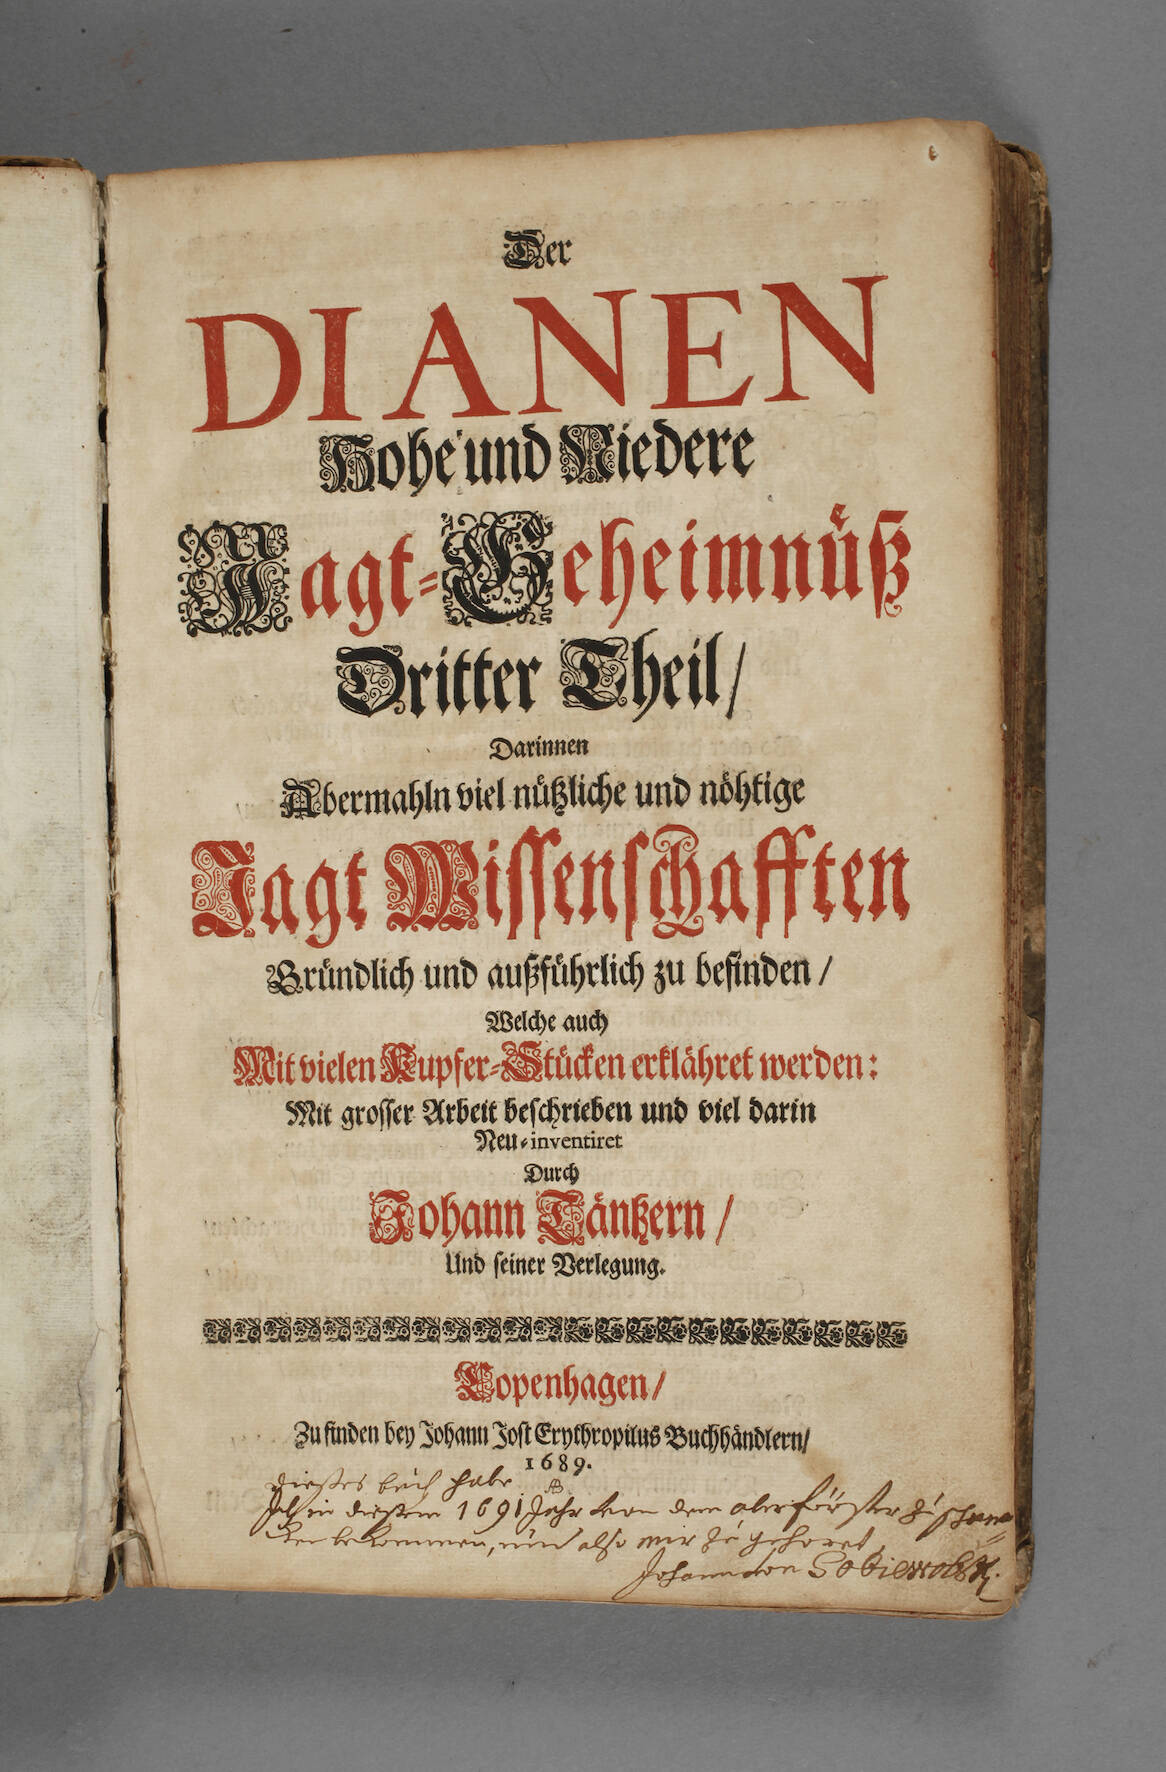 Der
DIANEN
Hohe und Niedere
Jagt-Geheimnüß
Dritter Theil/
Darinnen
Abermahln viel nützliche und nöhtige
Jagt Wissenschafften
Gründlich und außführlich zu befinden/
Welche auch
Mit vielen Kupfer-Stücken erklähret werden:
Mit grosser Arbeit beschrieben und viel darin
Neu-inventiret
Durch
Johann Täntzern/
Und seiner Verlegung.
Copenhagen/
Zu finden bey Johann Jost Erythropilus Buchhändlern/
1689.
dießes buch habe
Ich in dießem 1691 Jahr von dem oberförster zu
bekommen, und also mir zu gehöret
Johann von